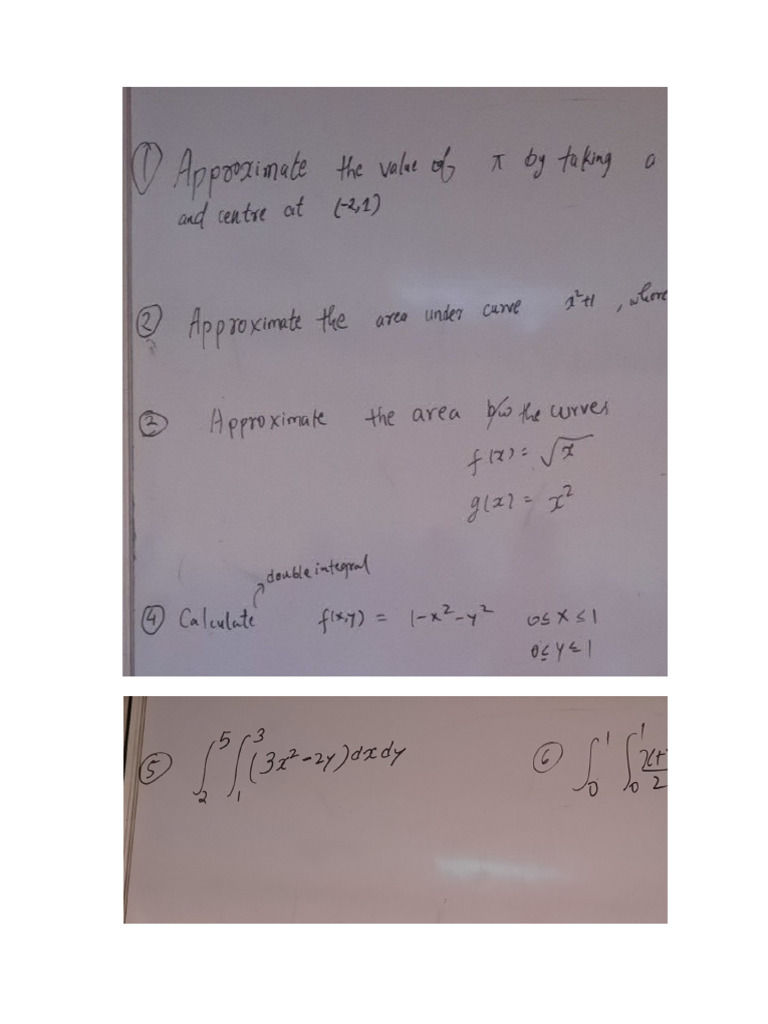 ① Approximate the value of π by taking a
and centre at (-2,1)
② Approximate the area under curve x²+1 , where
③ Approximate the area b/w the curves
f(x) = √x
g(x) = x²
double integral
④ Calculate f(x,y) = 1-x²-y² 0≤x≤1
0≤y≤1
⑤ ∫₂⁵ ∫₁³ (3x²-2y)dxdy ⑥ ∫₀¹ ∫₀¹ x+/2